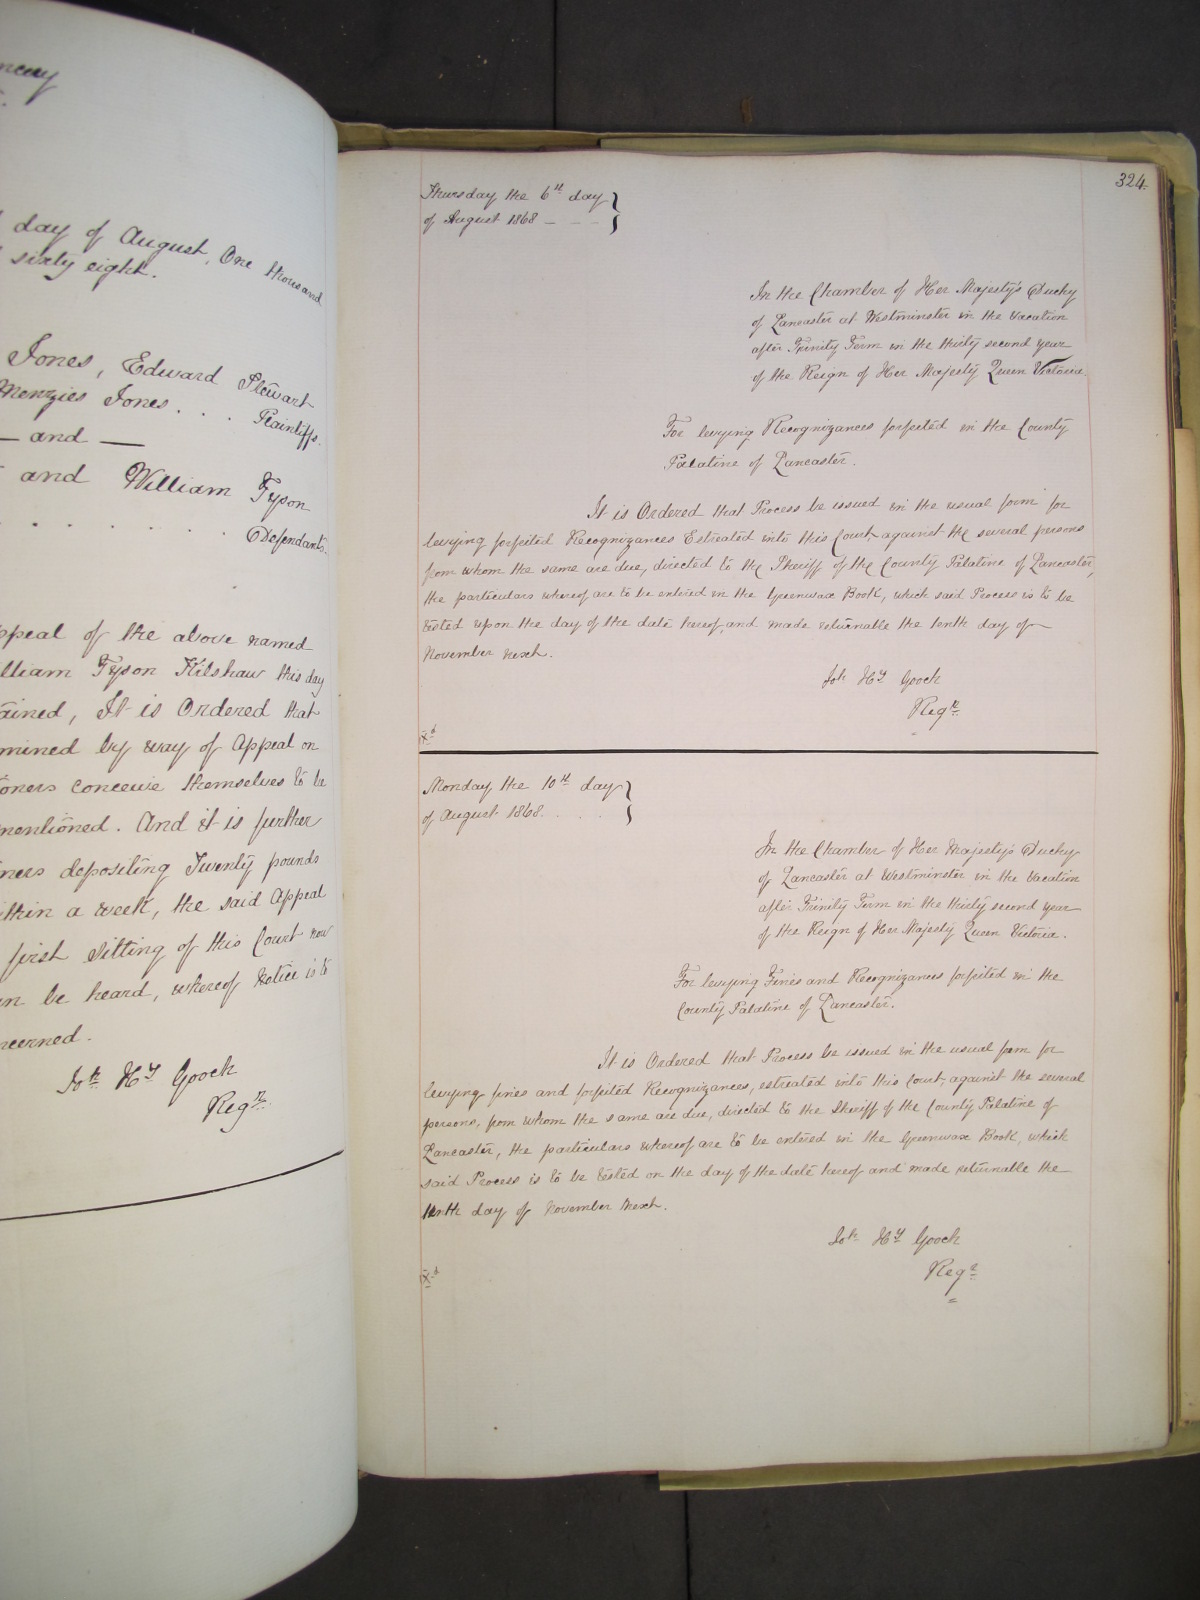 day of August, One thousand
sixty eight.
Jones, Edward Stewart
Menzies Jones . . . Plaintiffs.
— and —
and William Tyson
. . . . . . Defendants.
ppeal of the above named
lliam Tyson Kilshaw this day
ained, It is Ordered that
mined by way of Appeal on
oners conceive themselves to be
mentioned. And it is further
ners depositing Twenty pounds
ithin a week, the said Appeal
first sitting of this Court now
n be heard, whereof Notice is to
ncerned.
Joh Hy Gooch
Regr.
324.
Thursday the 6th day
of August 1868 - - -
In the Chamber of Her Majesty's Duchy
of Lancaster at Westminster in the Vacation
after Trinity Term in the thirty second year
of the Reign of Her Majesty Queen Victoria.
For levying Recognizances forfeited in the County
Palatine of Lancaster.
It is Ordered that Process be issued in the usual form for
levying forfeited Recognizances Estreated into this Court, against the several persons
from whom the same are due, directed to the Sheriff of the County Palatine of Lancaster,
the particulars whereof are to be entered in the Greenwax Book, which said Process is to be
tested upon the day of the date hereof, and made returnable the tenth day of
November next.
Joh Hy Gooch
Regr.
Monday the 10th day
of August 1868. . . . .
In the Chamber of Her Majesty's Duchy
of Lancaster at Westminster in the Vacation
after Trinity Term in the thirty second year
of the Reign of Her Majesty Queen Victoria.
For levying Fines and Recognizances forfeited in the
County Palatine of Lancaster.
It is Ordered that Process be issued in the usual form for
levying fines and forfeited Recognizances, estreated into this Court, against the several
persons, from whom the same are due, directed to the Sheriff of the County Palatine of
Lancaster, the particulars whereof are to be entered in the Greenwax Book, which
said Process is to be tested on the day of the date hereof and made returnable the
tenth day of November next.
Joh Hy Gooch
Regr